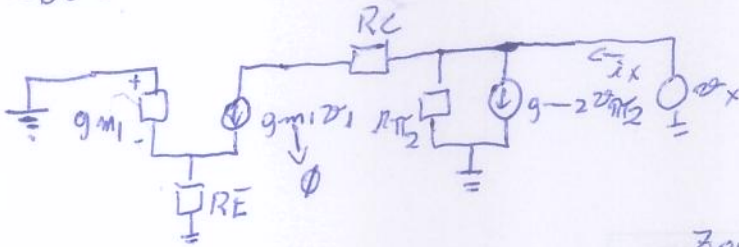 RC
ix
+
gm1
-
gm1 v1
rπ2
g-2 vπ2
vx
RE
ϕ